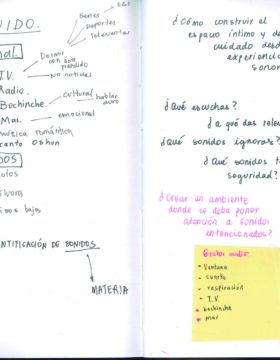 Series
Deportes
Telenovelas
UIDO.
nal.
T.V.
Dormir
con esto
prendido
No noticias
Radio.
Bochinche.
cultural
hablar
duro
Mar.
emocional
música romántica
canto Oshun
DOS
otos
idos bajos
NTIFICACIÓN DE SONIDOS
MATERIA
¿Cómo construir el
espacio íntimo y de
cuidado desde
experiencia
sonor
¿Qué escuchas?
¿a qué das relev
¿Qué sonidos ignoras?
¿Qué sonidos t
seguridad?
¿Crear un ambiente
donde se deba poner
atención a sonidos
intencionados?
Grabar audio:
- Ventana
- cuarto
- respiración
- T.V
* bochinche
* mar